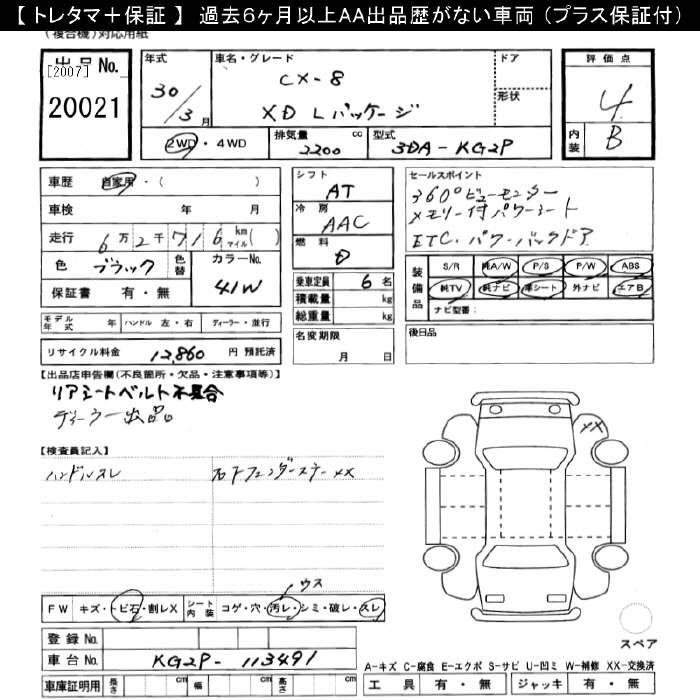 【トレタマ＋保証】 過去６ヶ月以上ＡＡ出品歴がない車両（プラス保証付）
(複合機)対応用紙
出品No.
[2007]
20021
年式
30/3月
車名・グレード
CX-8
XD Lパッケージ
ドア
形状
評価点
4
内装
B
2WD・4WD
排気量 2200 cc
型式 3DA-KG2P
車歴 自家用・( )
車検 年 月
走行 6万2千716 km マイル( )
色 ブラック 色替
カラーNo. 41W
保証書 有・無
シフト
AT
冷房
AAC
燃料
D
乗車定員 6名
積載量 kg
総重量 kg
名変期限
月 日
セールスポイント
360°ビューモニター
メモリー付パワーシート
ETC・パワーバックドア
装備品
S/R 純A/W P/S P/W ABS
純TV 純ナビ 革シート 外ナビ エアB
ナビ型番:
後日品
モデル年式 年 ハンドル 左・右 ディーラー・並行
リサイクル料金 12,860 円 預託済
【出品店申告欄(不良箇所・欠品・注意事項等)】
リアシートベルト不具合
ディーラー出品
【検査員記入】
ハンドルスレ
右Fフェンダーステー XX
XX
ウス
FW キズ・トビ石・割レX
シート内装 コゲ・穴・汚レ・シミ・破レ・スレ
登録No.
車台No. KG2P-113491
車庫証明用 長さ cm 幅 cm 高さ cm
スペア
A-キズ C-腐食 E-エクボ S-サビ U-凹ミ W-補修 XX-交換済
工具 有・無 ジャッキ 有・無